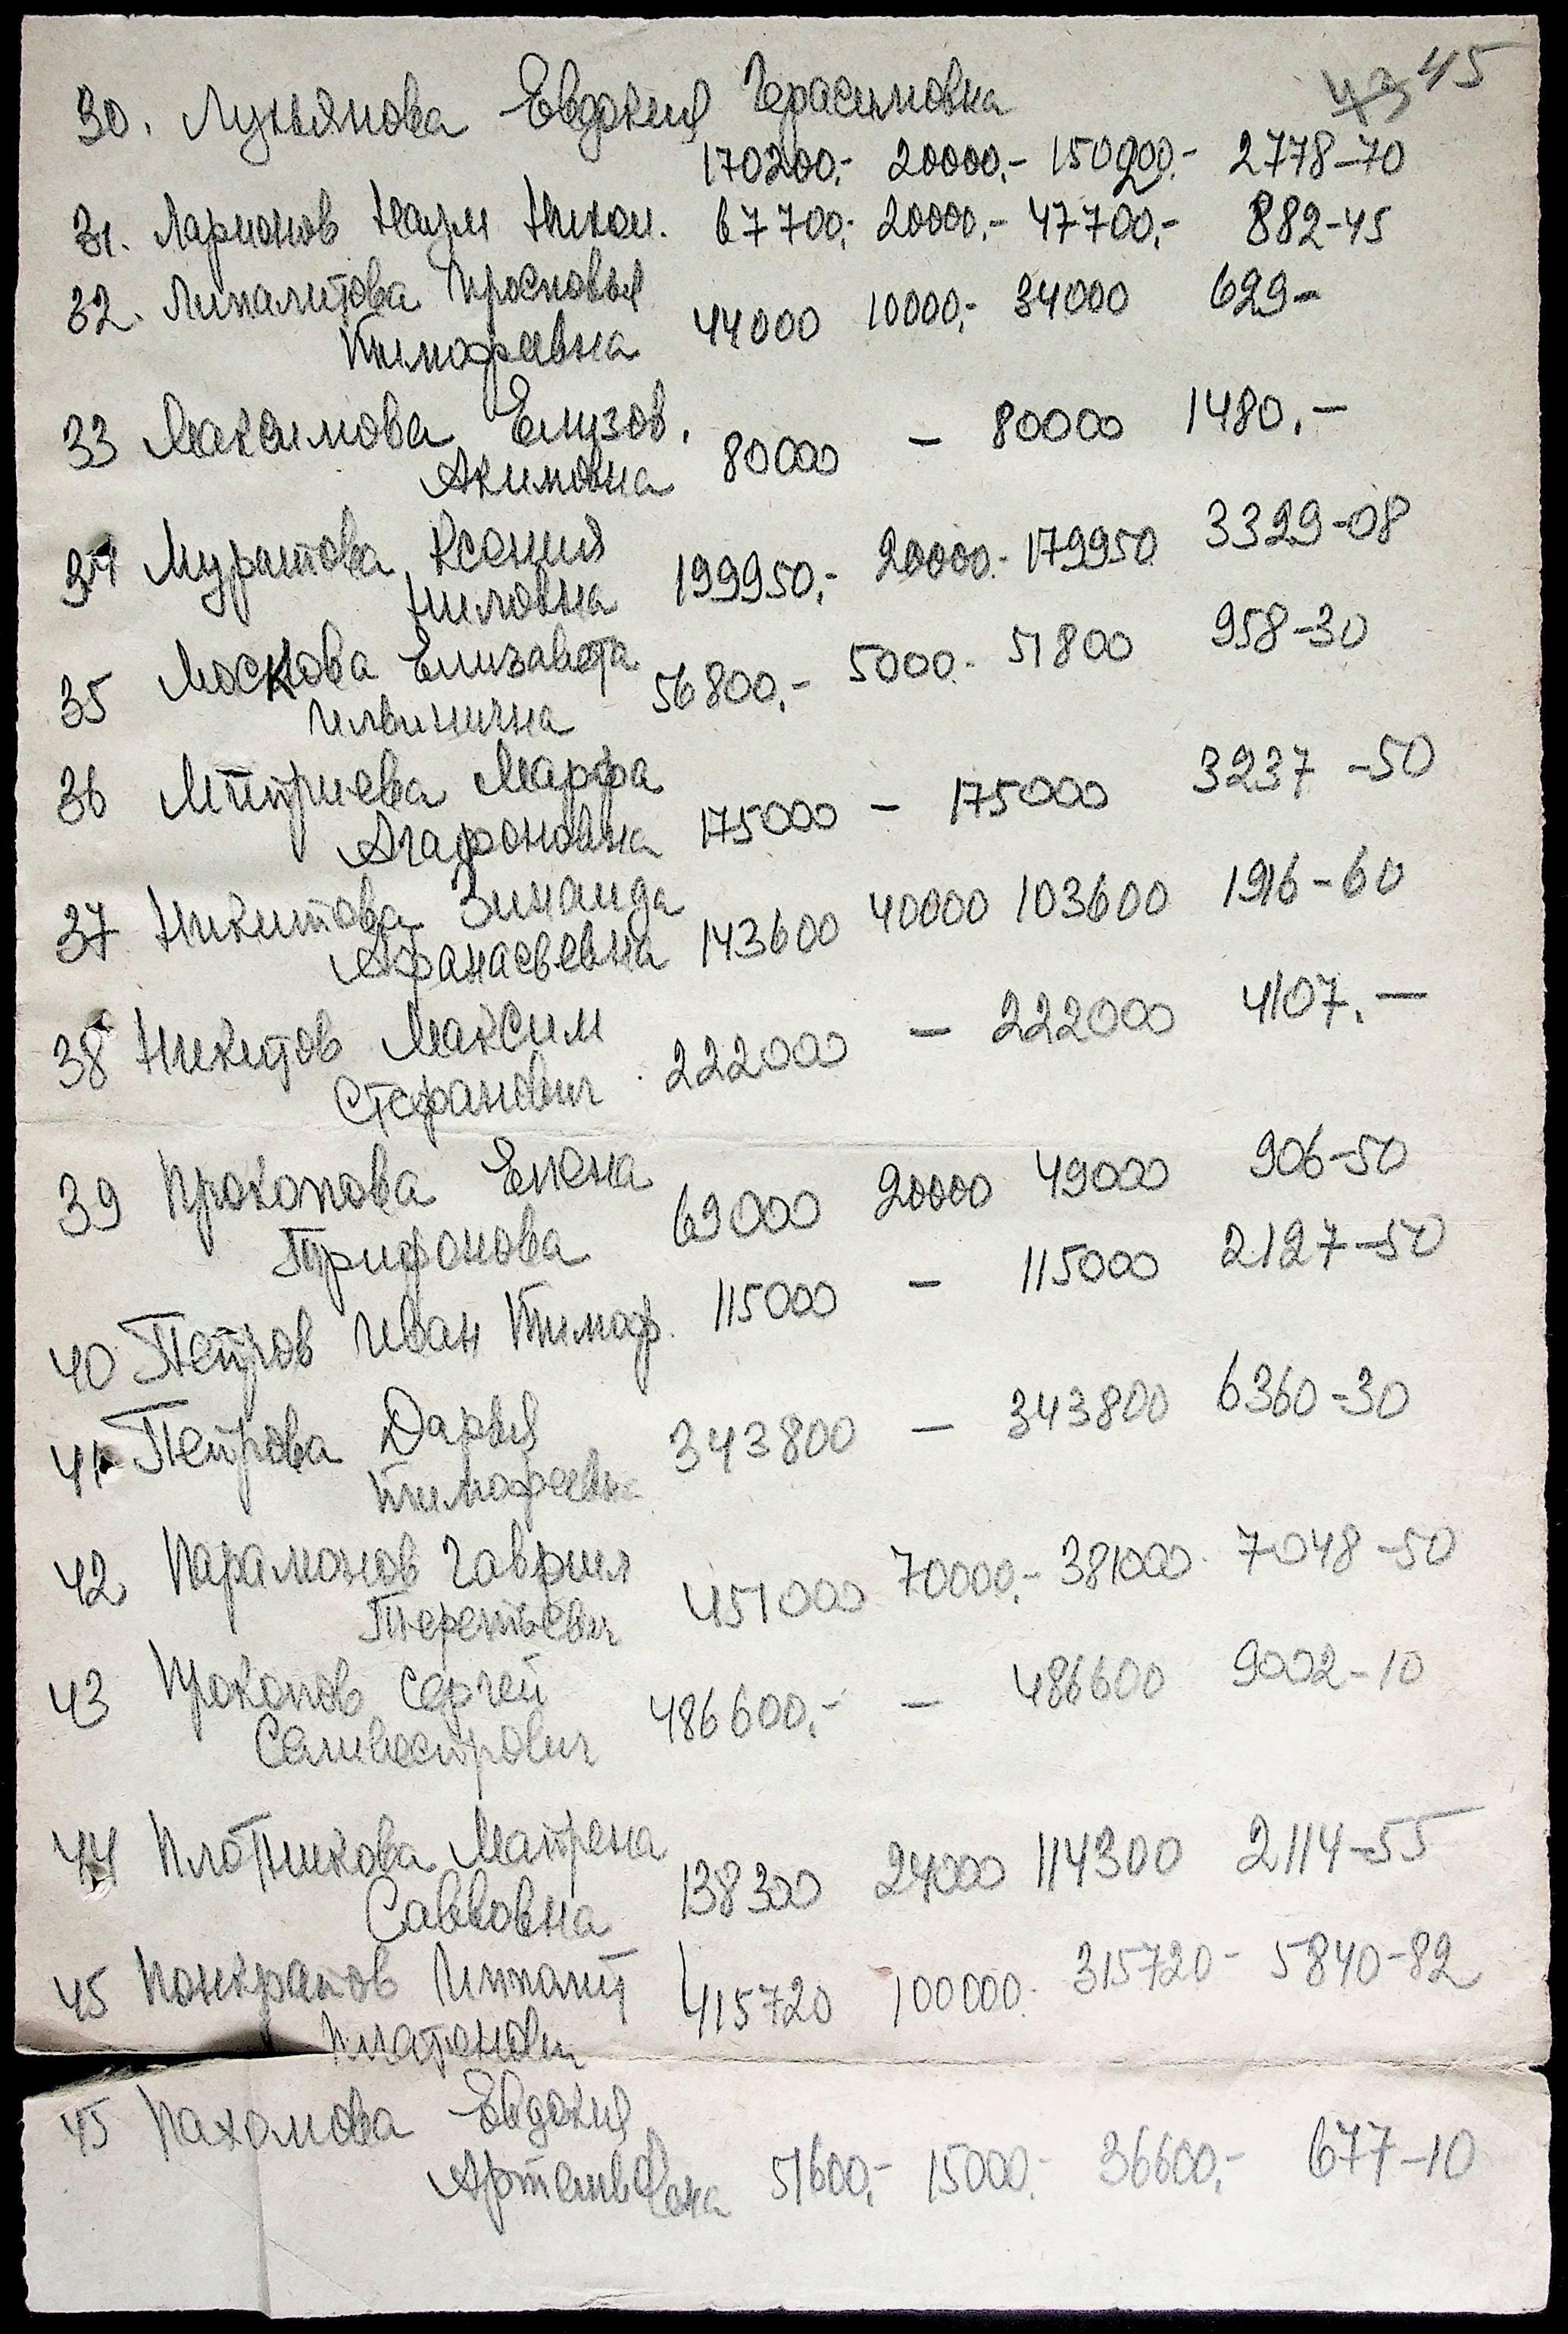 43 45
30. Лукьянова Евдокия Герасимовна
170200,- 20000,- 150200,- 2778-70
31. Ларионов Наум Никон. 67700,- 20000,- 47700,- 882-45
32. Липалитова Просковья
Тимофеевна 44000 10000,- 34000 629-
33 Максимова Елизов.
Акимовна 80000 - 80000 1480,-
34 Муратова Ксения
Ниловна 199950,- 20000.- 179950 3329-08
35 Москова Елизавета
Ильинична 56800,- 5000.- 51800 958-30
36 Марфа
Агафоновна 175000 - 175000 3237-50
37 Никитова Зинаида
Афанасьевна 143600 40000 103600 1916-60
38 Никитов Максим
Стефанович 222000 - 222000 4107.-
39 Прокопова Елена
Трифонова 69000 20000 49000 906-50
40 Петров Иван Тимоф. 115000 - 115000 2127-50
41 Петрова Дарья
Тимофеевна 343800 - 343800 6360-30
42 Парамонов Гаврил
Терентьевич 451000 70000,- 381000 7048-50
43 Прокопов Сергей
Селивестрович 486600,- - 486600 9002-10
44 Плотникова Матрена
Савковна 138300 24000 114300 2114-55
45 Понкратов Иппалит
Платонович 415720 100000.- 315720- 5840-82
45 Пахомова Евдокия
51600,- 15000.- 36600,- 677-10